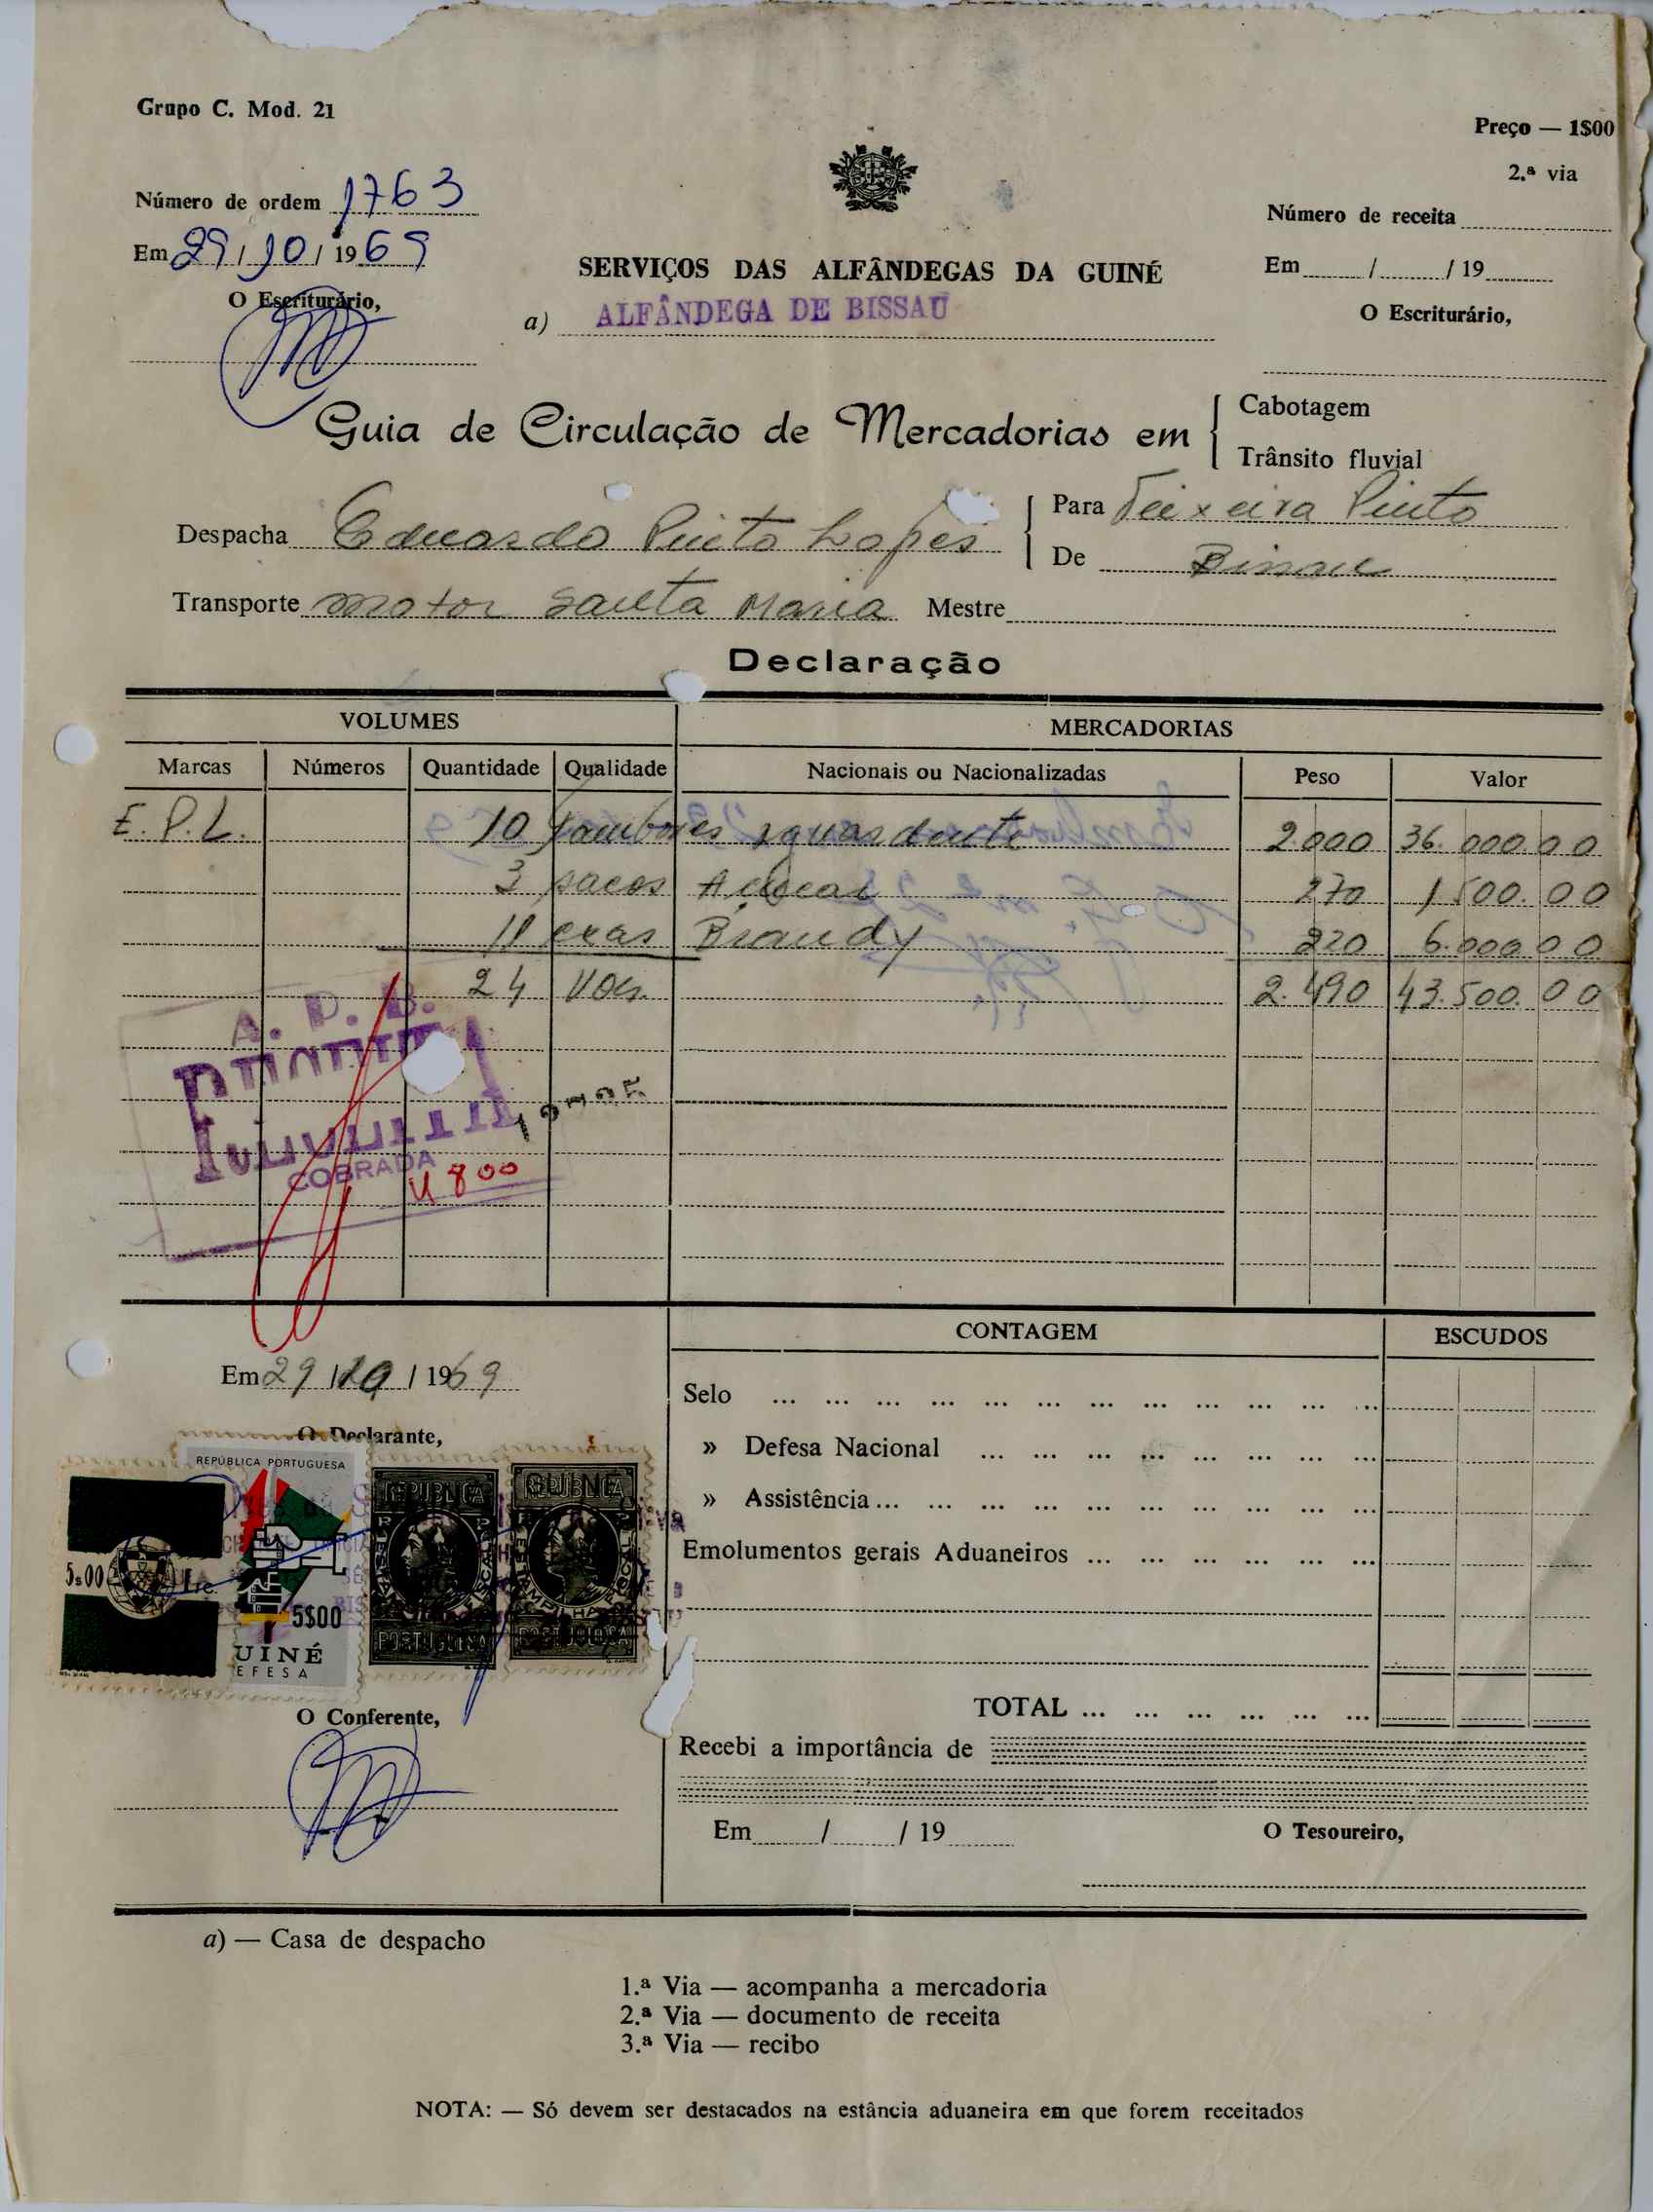 Grupo C. Mod. 21
Preço — 1$00
2.ª via
Número de ordem 1763
Em 29/10/1969
O Escriturário,
Número de receita
Em / / 19
O Escriturário,
SERVIÇOS DAS ALFÂNDEGAS DA GUINÉ
a) ALFÂNDEGA DE BISSAU
Guia de Circulação de Mercadorias em { Cabotagem
Trânsito fluvial
Despacha Eduardo Pinto Lopes { Para Teixeira Pinto
De Bissau
Transporte motor Santa Maria Mestre
Declaração
VOLUMES MERCADORIAS
Marcas Números Quantidade Qualidade Nacionais ou Nacionalizadas Peso Valor
E.P.L. 10 Tambores aguardente 2.000 36.000.00
3 sacos Açucar 270 1.500.00
11 cxas Brandy 220 6.000.00
24 vols. 2.490 43.500.00
A. P. B.
COBRADA
CONTAGEM ESCUDOS
Em 29/10/1969
Selo ... ... ... ... ... ... ... ... ... ... ... ...
O Declarante,
» Defesa Nacional ... ... ... ... ... ... ... ...
» Assistência ... ... ... ... ... ... ... ... ... ...
Emolumentos gerais Aduaneiros ... ... ... ... ... ...
REPÚBLICA PORTUGUESA
5$00
5$00
UINÉ
EFESA
REPUBLICA
PORTUGUESA
GUINÉ
REPUBLICA
ESTAMPILHA FISCAL
PORTUGUESA
TOTAL ... ... ... ... ... ...
O Conferente,
Recebi a importância de
Em / / 19
O Tesoureiro,
a) — Casa de despacho
1.ª Via — acompanha a mercadoria
2.ª Via — documento de receita
3.ª Via — recibo
NOTA: — Só devem ser destacados na estância aduaneira em que forem receitados